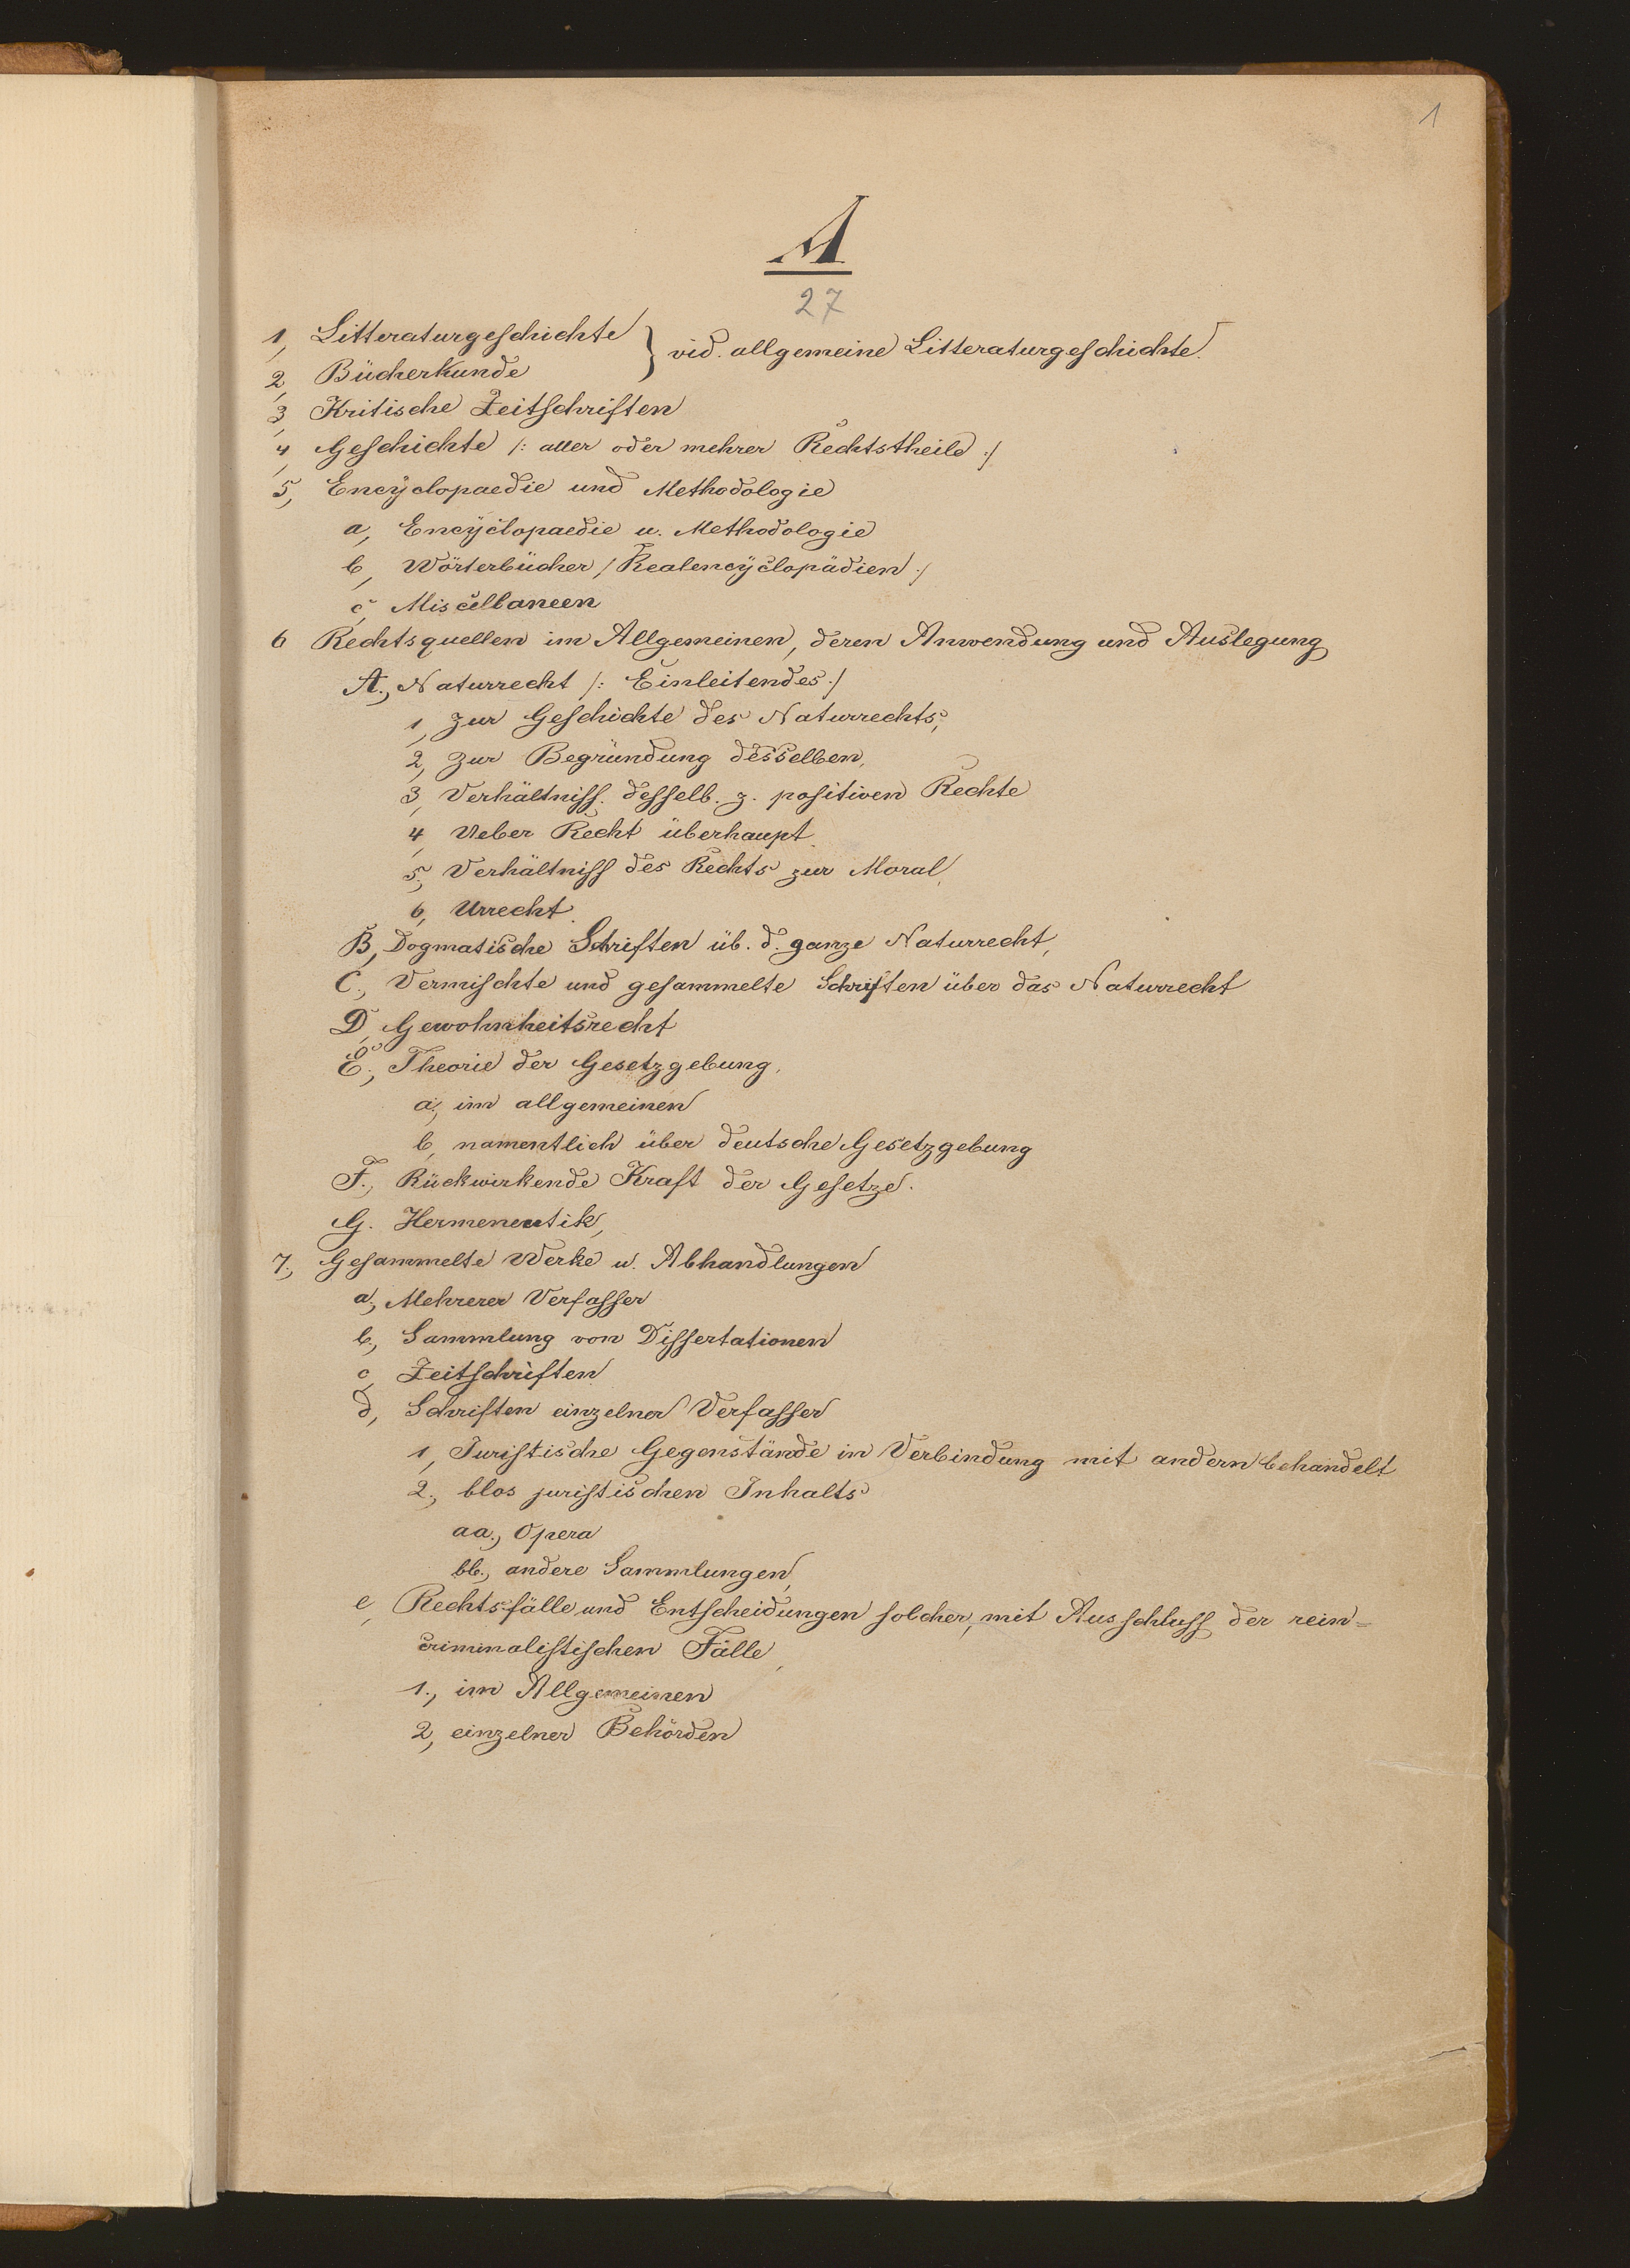 1
A
27
1, Litteraturgeschichte } vid. allgemeine Litteraturgeschichte.
2, Bücherkunde
3, Kritische Zeitschriften
4, Geschichte /: aller oder mehrer Rechtstheile :/
5, Encyclopaedie und Methodologie
a, Encyclopaedie u. Methodologie
b, Wörterbücher / Realencyclopädien :/
c, Miscellaneen
6 Rechtsquellen im Allgemeinen, deren Anwendung und Auslegung
A., Naturrecht /: Einleitendes :/
1, zur Geschichte des Naturrechts,
2, zur Begründung desselben,
3, Verhältniss. desselb. z. positiven Rechte
4, Ueber Recht überhaupt.
5., Verhältniss des Rechts zur Moral,
6, Urrecht.
B, Dogmatische Schriften üb. d. ganze Naturrecht,
C., Vermischte und gesammelte Schriften über das Naturrecht
D, Gewohnheitsrecht
E., Theorie der Gesetzgebung,
a, im allgemeinen
b, namentlich über deutsche Gesetzgebung
F., Rückwirkende Kraft der Gesetze.
G. Hermeneutik,
7., Gesammelte Werke u. Abhandlungen
a., Mehrerer Verfasser
b, Sammlung von Dissertationen
c, Zeitschriften
d, Schriften einzelner Verfasser
1, Juristische Gegenstände in Verbindung mit andern behandelt
2., blos juristischen Inhalts
aa., Opera
bb., andere Sammlungen,
e, Rechtsfälle und Entscheidungen solcher, mit Ausschluss der rein=
criminalistischen Fälle,
1., im Allgemeinen
2, einzelner Behörden